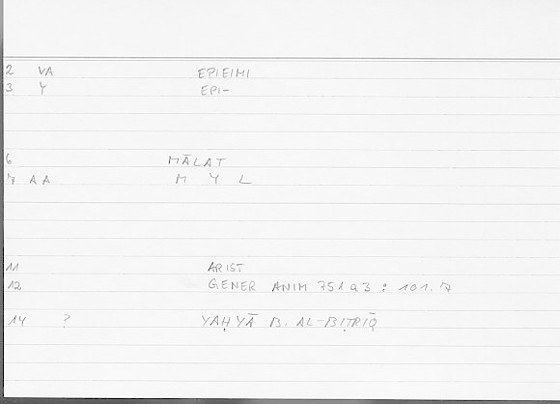 2 VA EPIEIMI
3 Y EPI-
6 MĀLAT
7 AA M Y L
11 ARIST
12 GENER ANIM 751a3 : 101.7
14 ? YAḤYĀ B. AL-BIṬRĪQ